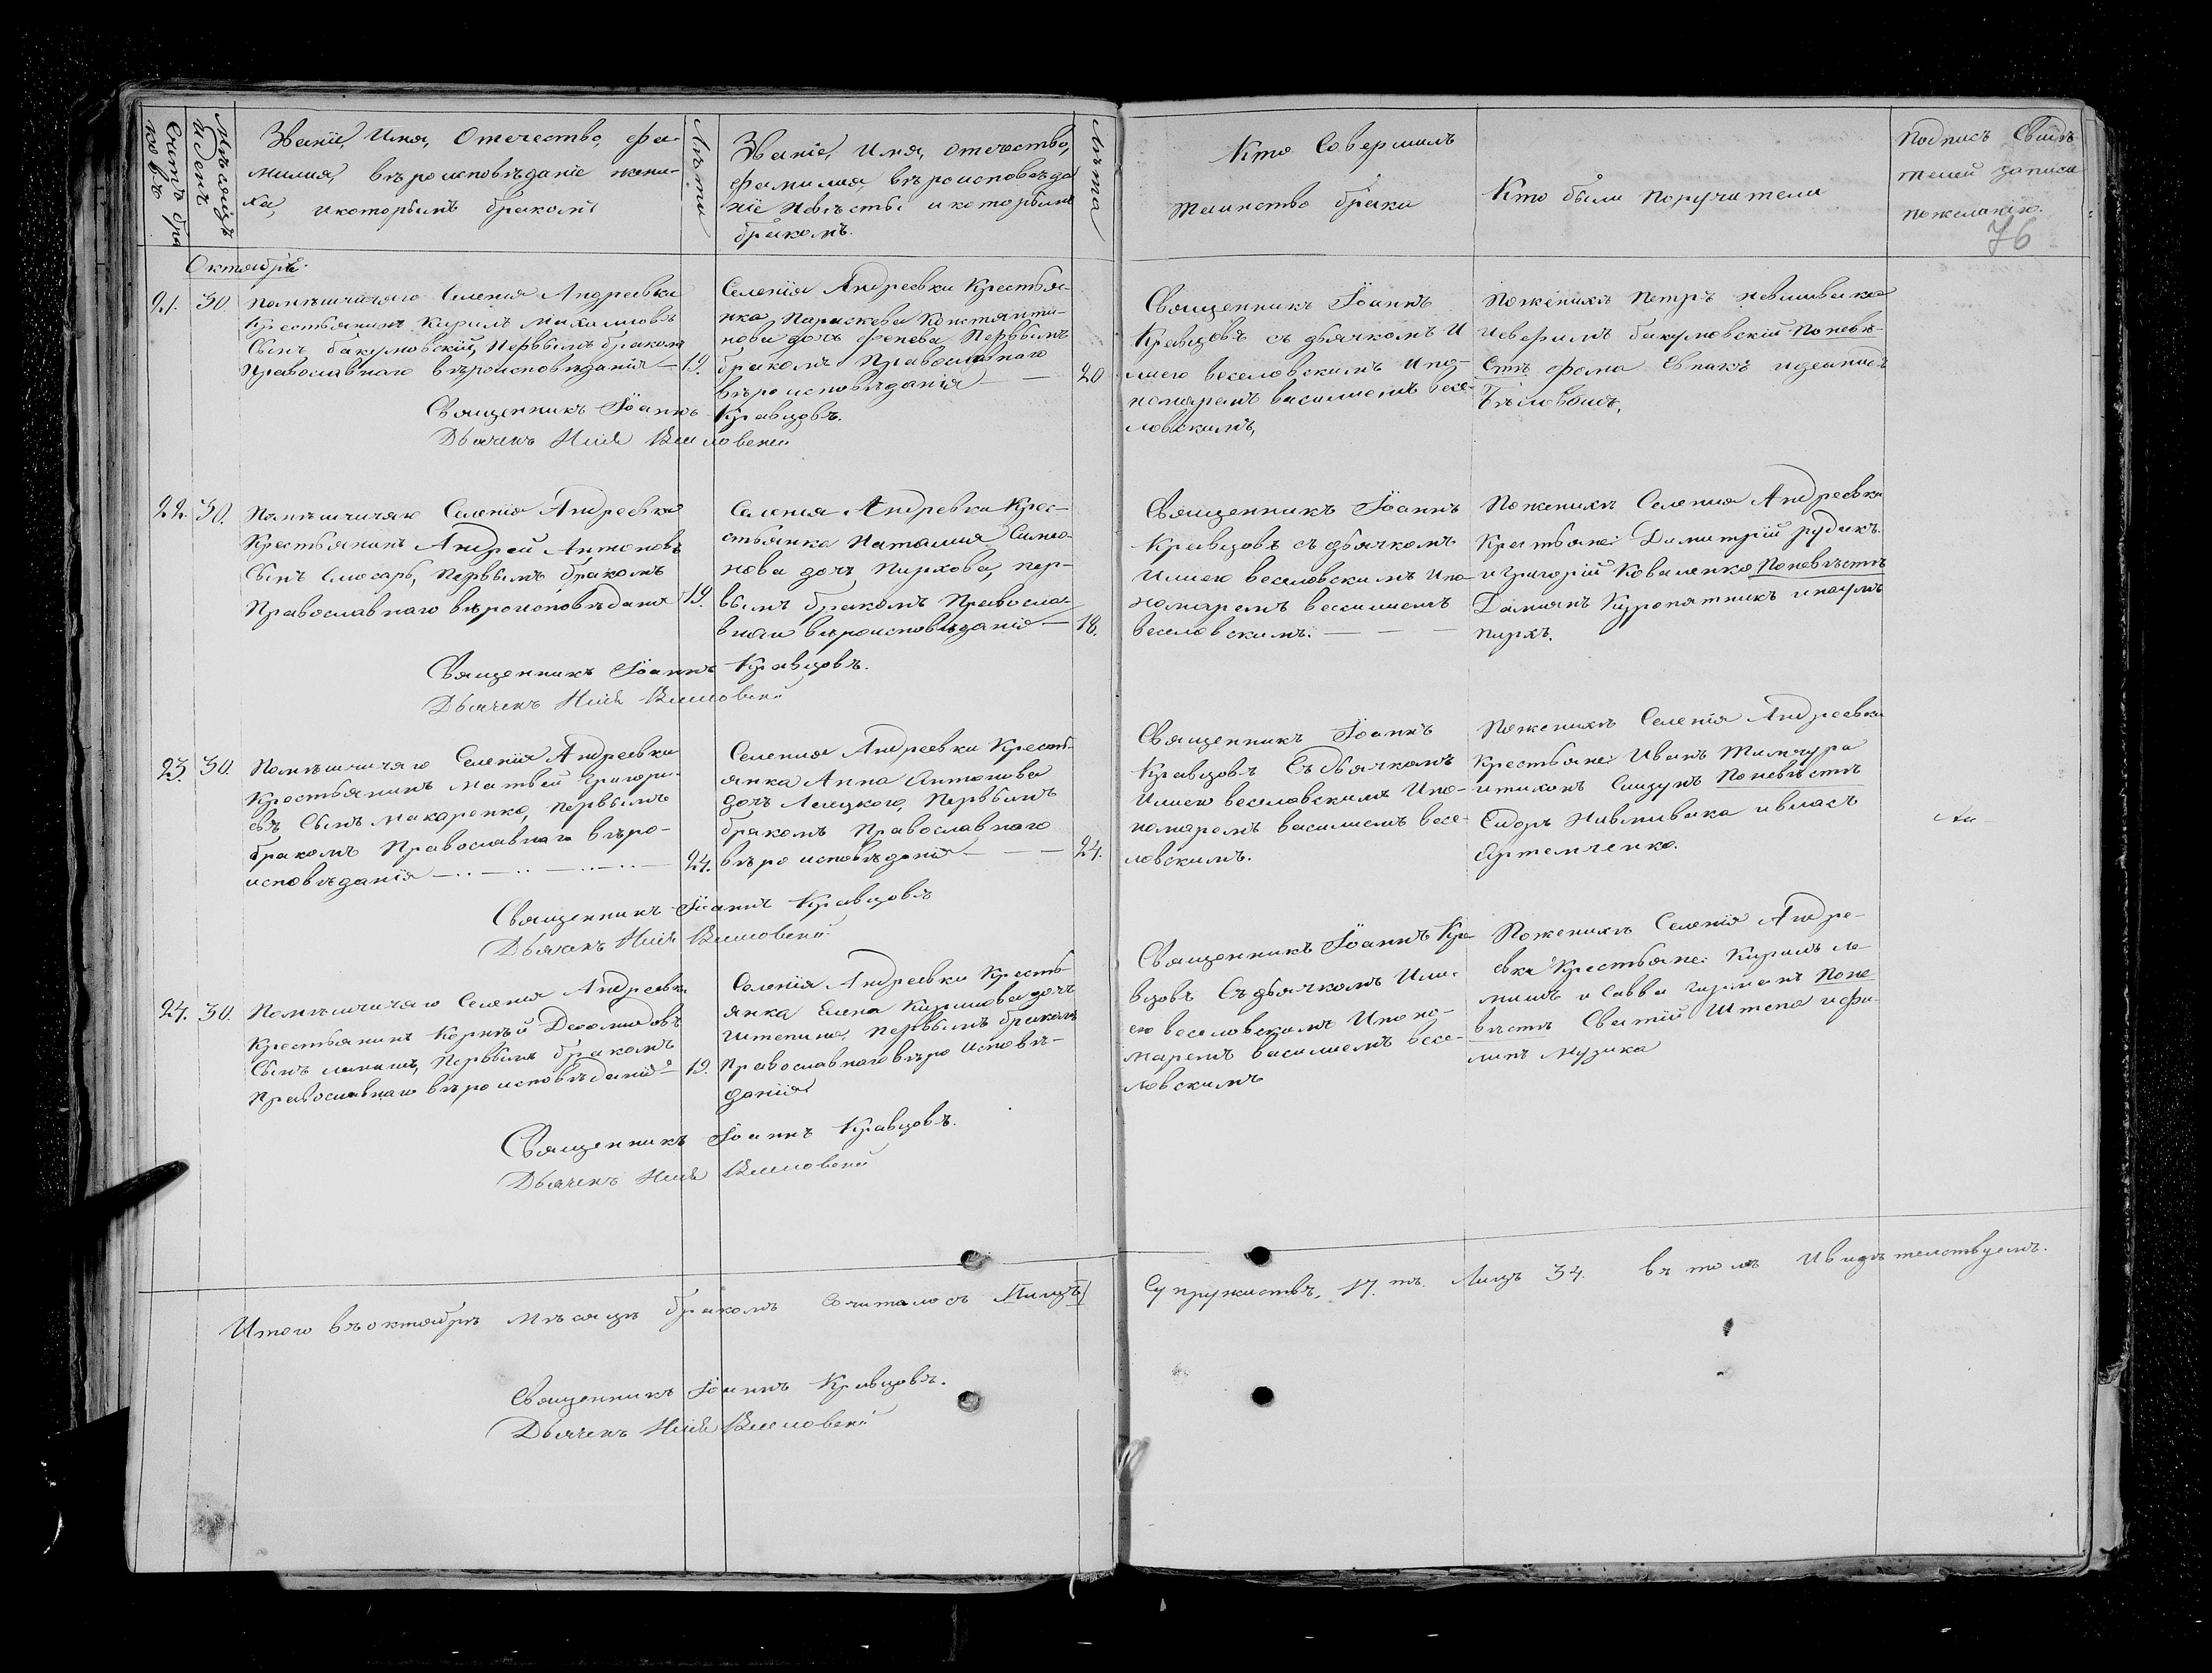 Счетъ бра
ковъ
Мѣсяцъ
и день
Званіе, Имя, Отечество, фа-
милия, вѣроисповѣданіе жени-
ха, и которымъ бракомъ
Лѣта
Званіе, Имя, отечество,
фамилия, вѣроисповѣда
ніе невѣсты и которымъ
бракомъ.
Лѣта
Кто Совершилъ
таинство брака
Кто были поручители
Подпись Свидѣ
телей записи
пожеланію.
76
Октябрь
21. 30. Помѣщичяго Селенія Андреевки
Крестьянинъ Кирилъ Михаиловъ
Сынъ бакумовскій, Первымъ бракомъ
Православнаго вѣроисповѣданія — 19.
Селенія Андреевки Крестья-
нка Параскева Константи-
нова дочь Первымъ
бракомъ Православнаго
вѣроисповѣданія — — 20
Священникъ Іоаннъ
Кравцовъ съ дьячкомъ И
лиею веселовскимъ и по-
номаремъ василиемъ весе-
ловскимъ,
Поженихѣ Петръ
бакумовскій Поневѣ-
стѣ фома
Священникъ Іоаннъ Кравцовъ.
Дьячекъ Илія Веселовскій
22. 30. Помѣщичяго Селенія Андреевки
Крестьянинъ Андрей Антоновъ
Сынъ Слюсарь, Первымъ бракомъ
Православнаго вѣроисповѣданія 19.
Селения Андревки Крес-
тьянка Наталия Симео-
нова дочь Пирхова, пер-
вымъ бракомъ Правосла-
внаго вѣроисповѣданія — 18.
Священникъ Іоаннъ
Кравцовъ съ дьячкомъ
Илиею веселовскимъ и по-
номаремъ василиемъ
веселовскимъ. — — —
Поженихѣ Селения Андреевки
Крестьяне: Димитрій рудикъ
и Григорій Коваленко Поневѣстѣ
Дамиянъ Куропятникъ и наумъ
пирхъ.
Священникъ Іоаннъ Кравцовъ.
Дьячекъ Илія Веселовскій
23. 30. Помѣщичяго Селенія Андреевки
Крестьянинъ Матвей Григори-
евъ Сынъ Макаренко, первымъ
бракомъ Православнаго вѣро-
исповѣданія — 24.
Селения Андреевки Кресть-
янка Анна Антонова
дочь Первымъ
бракомъ Православнаго
вѣроисповѣданія — — 24.
Священникъ Іоаннъ
Кравцовъ Съ дьячкомъ
Илиею веселовскимъ И по-
номаремъ василиемъ весе-
ловскимъ.
Поженихѣ Селенія Андреевки
Крестьяне: Иванъ
и тихонъ Поневѣстѣ
Сидоръ и власъ
Артемченко.
Священникъ Іоаннъ Кравцовъ
Дьячекъ Илія Веселовскій
24. 30. Помѣщичяго Селения Андреевки
Крестьянинъ Корнѣй
Сынъ Первымъ бракомъ
Православнаго вѣроисповѣданія — 19.
Селенія Андреевки Кресть-
янка Елена Кирилова дочь
Штепина, первымъ бракомъ
Православнаго вѣро исповѣ-
данія
Священникъ Іоаннъ Кра-
вцовъ Съ дьячкомъ Или-
ею веселовскимъ И поно-
маремъ василиемъ весе-
ловскимъ
Поженихѣ Селенія Андре-
евки Крестьяне: Кирилъ
и Савва Поне
вѣстѣ Штепа и фи-
липъ музика
Священникъ Іоаннъ Кравцовъ.
Дьячекъ Илія Веселовскій
Итого въ октябрѣ мѣсяцѣ бракомъ Сочиталось
Супружествъ, 17. Лицъ 34. въ томъ И видѣтелствуемъ.
Священникъ Іоаннъ Кравцовъ.
Дьячекъ Илія Веселовскій